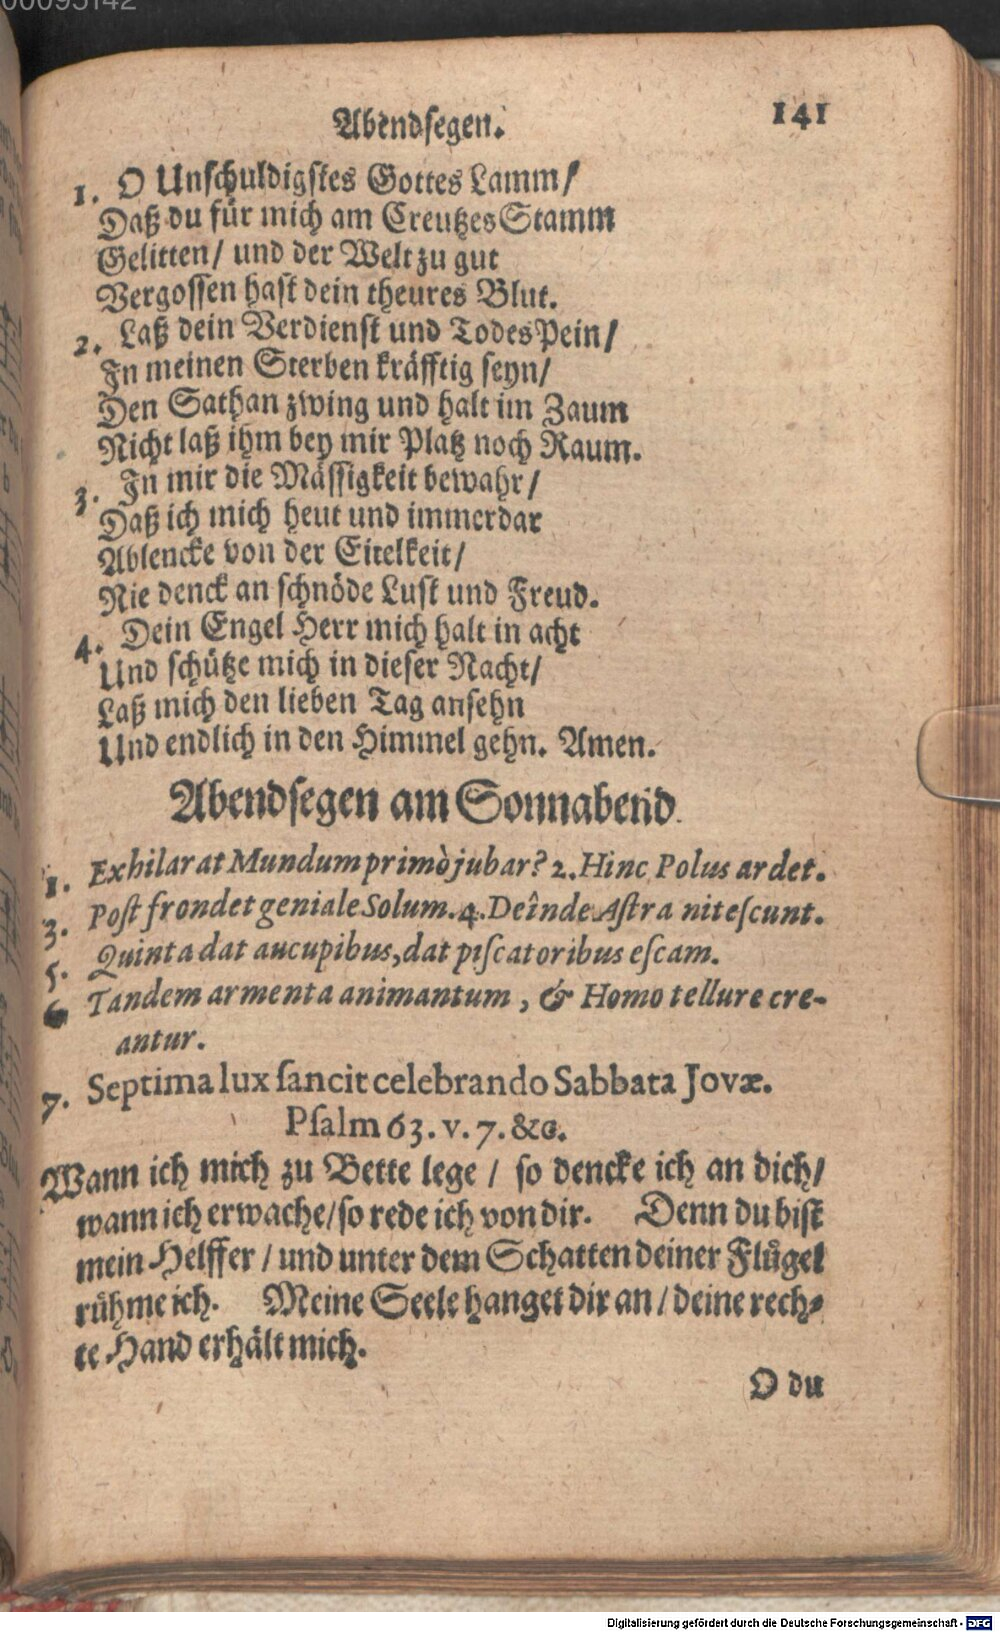 00095142
Abendsegen. 141
1. O Unſchuldigſtes Gottes Lamm/
Daß du für mich am Creutzes Stamm
Gelitten/ und der Welt zu gut
Vergoſſen haſt dein theures Blut.
2. Laß dein Verdienſt und Todes Pein/
In meinen Sterben kräfftig ſeyn/
Den Sathan zwing und halt im Zaum
Nicht laß ihm bey mir Platz noch Raum.
3. In mir die Mäſſigkeit bewahr/
Daß ich mich heut und immerdar
Ablencke von der Eitelkeit/
Nie denck an ſchnöde Luſt und Freud.
4. Dein Engel Herr mich halt in acht
Und ſchütze mich in dieſer Nacht/
Laß mich den lieben Tag anſehn
Und endlich in den Himmel gehn. Amen.
Abendſegen am Sonnabend.
1. Exhilarat Mundum primò jubar? 2. Hinc Polus ardet.
3. Poſt frondet geniale Solum. 4. Deînde Aſtra niteſcunt.
5. Quinta dat aucupibus, dat piſcatoribus eſcam.
6 Tandem armenta animantum, & Homo tellure cre-
antur.
7. Septima lux ſancit celebrando Sabbata Jovæ.
Pſalm 63. v. 7. &c.
Wann ich mich zu Bette lege / ſo dencke ich an dich/
wann ich erwache/ ſo rede ich von dir. Denn du biſt
mein Helffer / und unter dem Schatten deiner Flůgel
růhme ich. Meine Seele hanget dir an / deine rech⸗
te Hand erhält mich.
O du
Digitalisierung gefördert durch die Deutsche Forschungsgemeinschaft - DFG